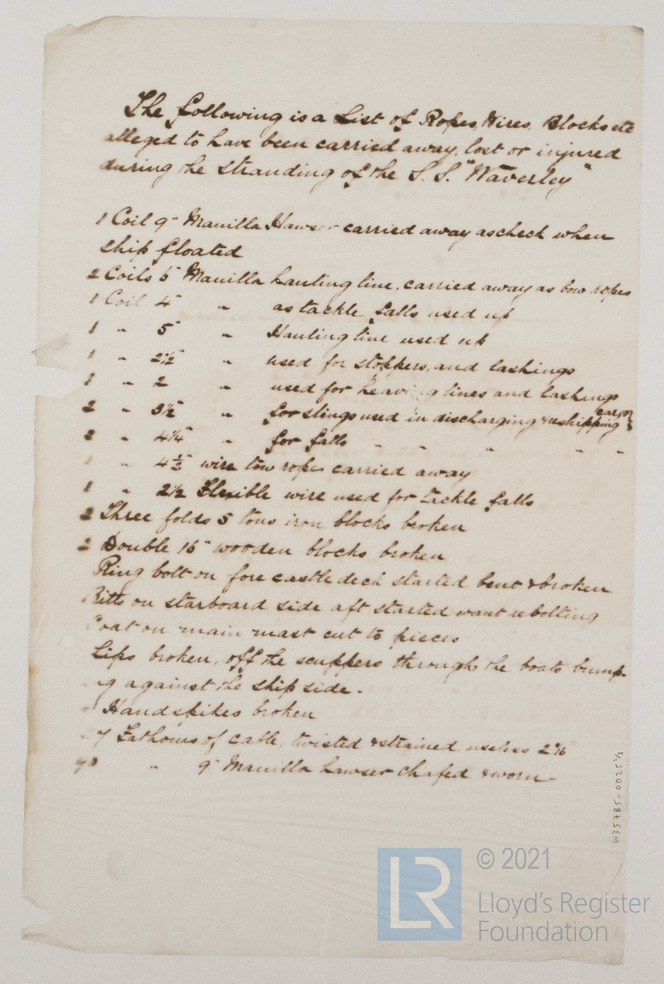 The following is a List of Ropes, Wires, Blocks etc
alleged to have been carried away, lost or injured
during the stranding of the S.S. "Waverley"
1 Coil 9" Manilla Hawser carried away as check when
ship floated
2 Coils 5" Manilla hauling line, carried away as bow ropes
1 Coil 4" " as tackle falls used up
1 " 5" " Hauling line used up
1 " 2½" " used for stoppers, and lashings
1 " 2 " used for heaving lines and lashings
2 " 3½" " for slings used in discharging & reshipping cargo
2 " 4¼" " for falls " " " " "
1 " 4½" wire tow ropes carried away
1 " 2½ Flexible wire used for tackle falls
2 Three folds 5 tons iron blocks broken
2 Double 16" wooden blocks broken
Ring bolt on fore castle deck started bent & broken
Bitts on starboard side aft started want rebolting
Coat on main mast cut to pieces
Lips broken, off the scuppers through the boats bump-
ing against the ship side.
Handspikes broken
27 Fathoms of cable, twisted & strained useless
90 " 9" Manilla hawser chafed & worn
W35785-0025 1/2
LR
© 2021
Lloyd's Register
Foundation